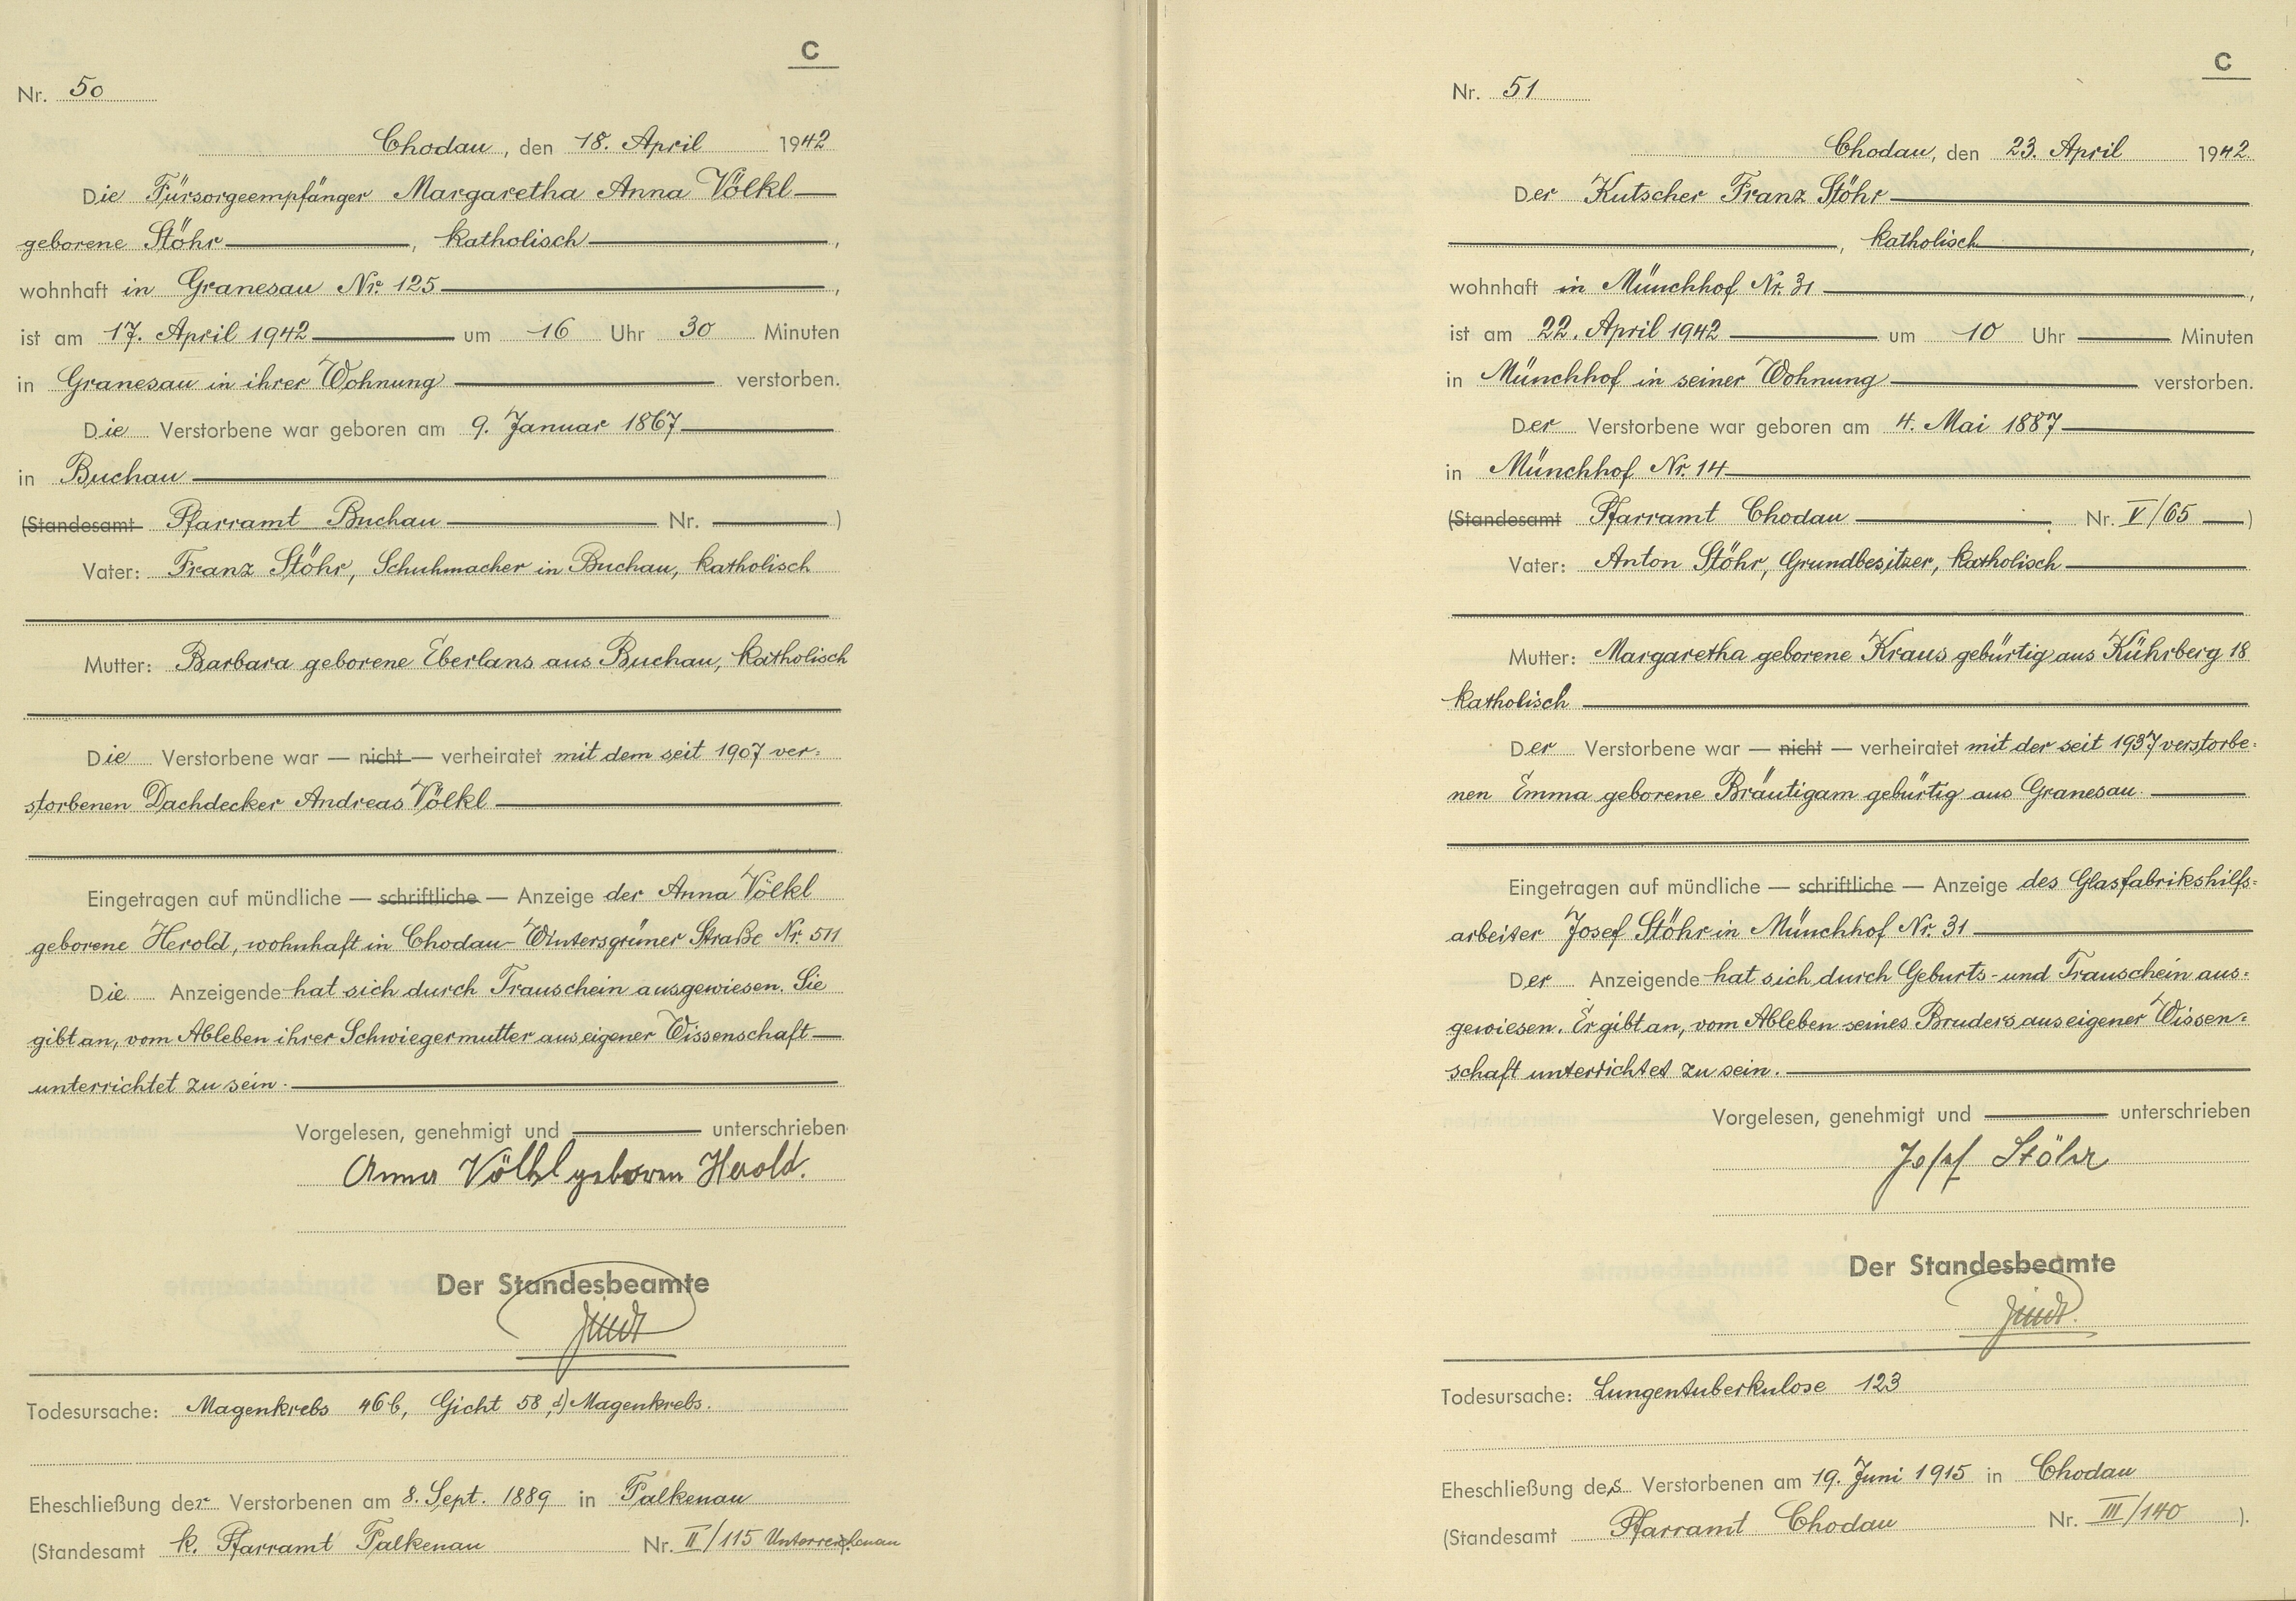 C
Nr. 50
Chodau, den 18. April 1942
Die Fürsorgeempfänger Margaretha Anna Völkl
geborene Stöhr, katholisch,
wohnhaft in Granesau Nr. 125,
ist am 17. April 1942 um 16 Uhr 30 Minuten
in Granesau in ihrer Wohnung verstorben.
Die Verstorbene war geboren am 9. Januar 1867
in Buchau
(Standesamt Pfarramt Buchau Nr. )
Vater: Franz Stöhr, Schuhmacher in Buchau, katholisch
Mutter: Barbara geborene Eberlans aus Buchau, katholisch
Die Verstorbene war — nicht — verheiratet mit dem seit 1907 ver=
storbenen Dachdecker Andreas Völkl
Eingetragen auf mündliche — schriftliche — Anzeige der Anna Völkl
geborene Herold, wohnhaft in Chodau- Wintersgrüner Straße Nr. 511
Die Anzeigende hat sich durch Trauschein ausgewiesen. Sie
gibt an, vom Ableben ihrer Schwiegermutter aus eigener Wissenschaft
unterrichtet zu sein.
Vorgelesen, genehmigt und unterschrieben
Anna Völkl geboren Herold.
Der Standesbeamte
Todesursache: Magenkrebs 46b, Gicht 58, Magenkrebs.
Eheschließung der Verstorbenen am 8. Sept. 1889 in Falkenau
(Standesamt k. Pfarramt Falkenau Nr. II/115 Unterreichenau
C
Nr. 51
Chodau, den 23. April 1942
Der Kutscher Franz Stöhr
, katholisch,
wohnhaft in Münchhof Nr. 31,
ist am 22. April 1942 um 10 Uhr Minuten
in Münchhof in seiner Wohnung verstorben.
Der Verstorbene war geboren am 4. Mai 1887
in Münchhof Nr. 14
(Standesamt Pfarramt Chodau Nr. V/65 )
Vater: Anton Stöhr, Grundbesitzer, katholisch
Mutter: Margaretha geborene Kraus gebürtig aus Kührberg 18
katholisch
Der Verstorbene war — nicht — verheiratet mit der seit 1937 verstorbe=
nen Emma geborene Bräutigam gebürtig aus Granesau.
Eingetragen auf mündliche — schriftliche — Anzeige des Glasfabrikshilfs=
arbeiter Josef Stöhr in Münchhof Nr. 31
Der Anzeigende hat sich durch Geburts- und Trauschein aus=
gewiesen. Er gibt an, vom Ableben seines Bruders aus eigener Wissen=
schaft unterrichtet zu sein.
Vorgelesen, genehmigt und unterschrieben
Josef Stöhr
Der Standesbeamte
Todesursache: Lungentuberkulose 123
Eheschließung des Verstorbenen am 19. Juni 1915 in Chodau
(Standesamt Pfarramt Chodau Nr. III/140 ).